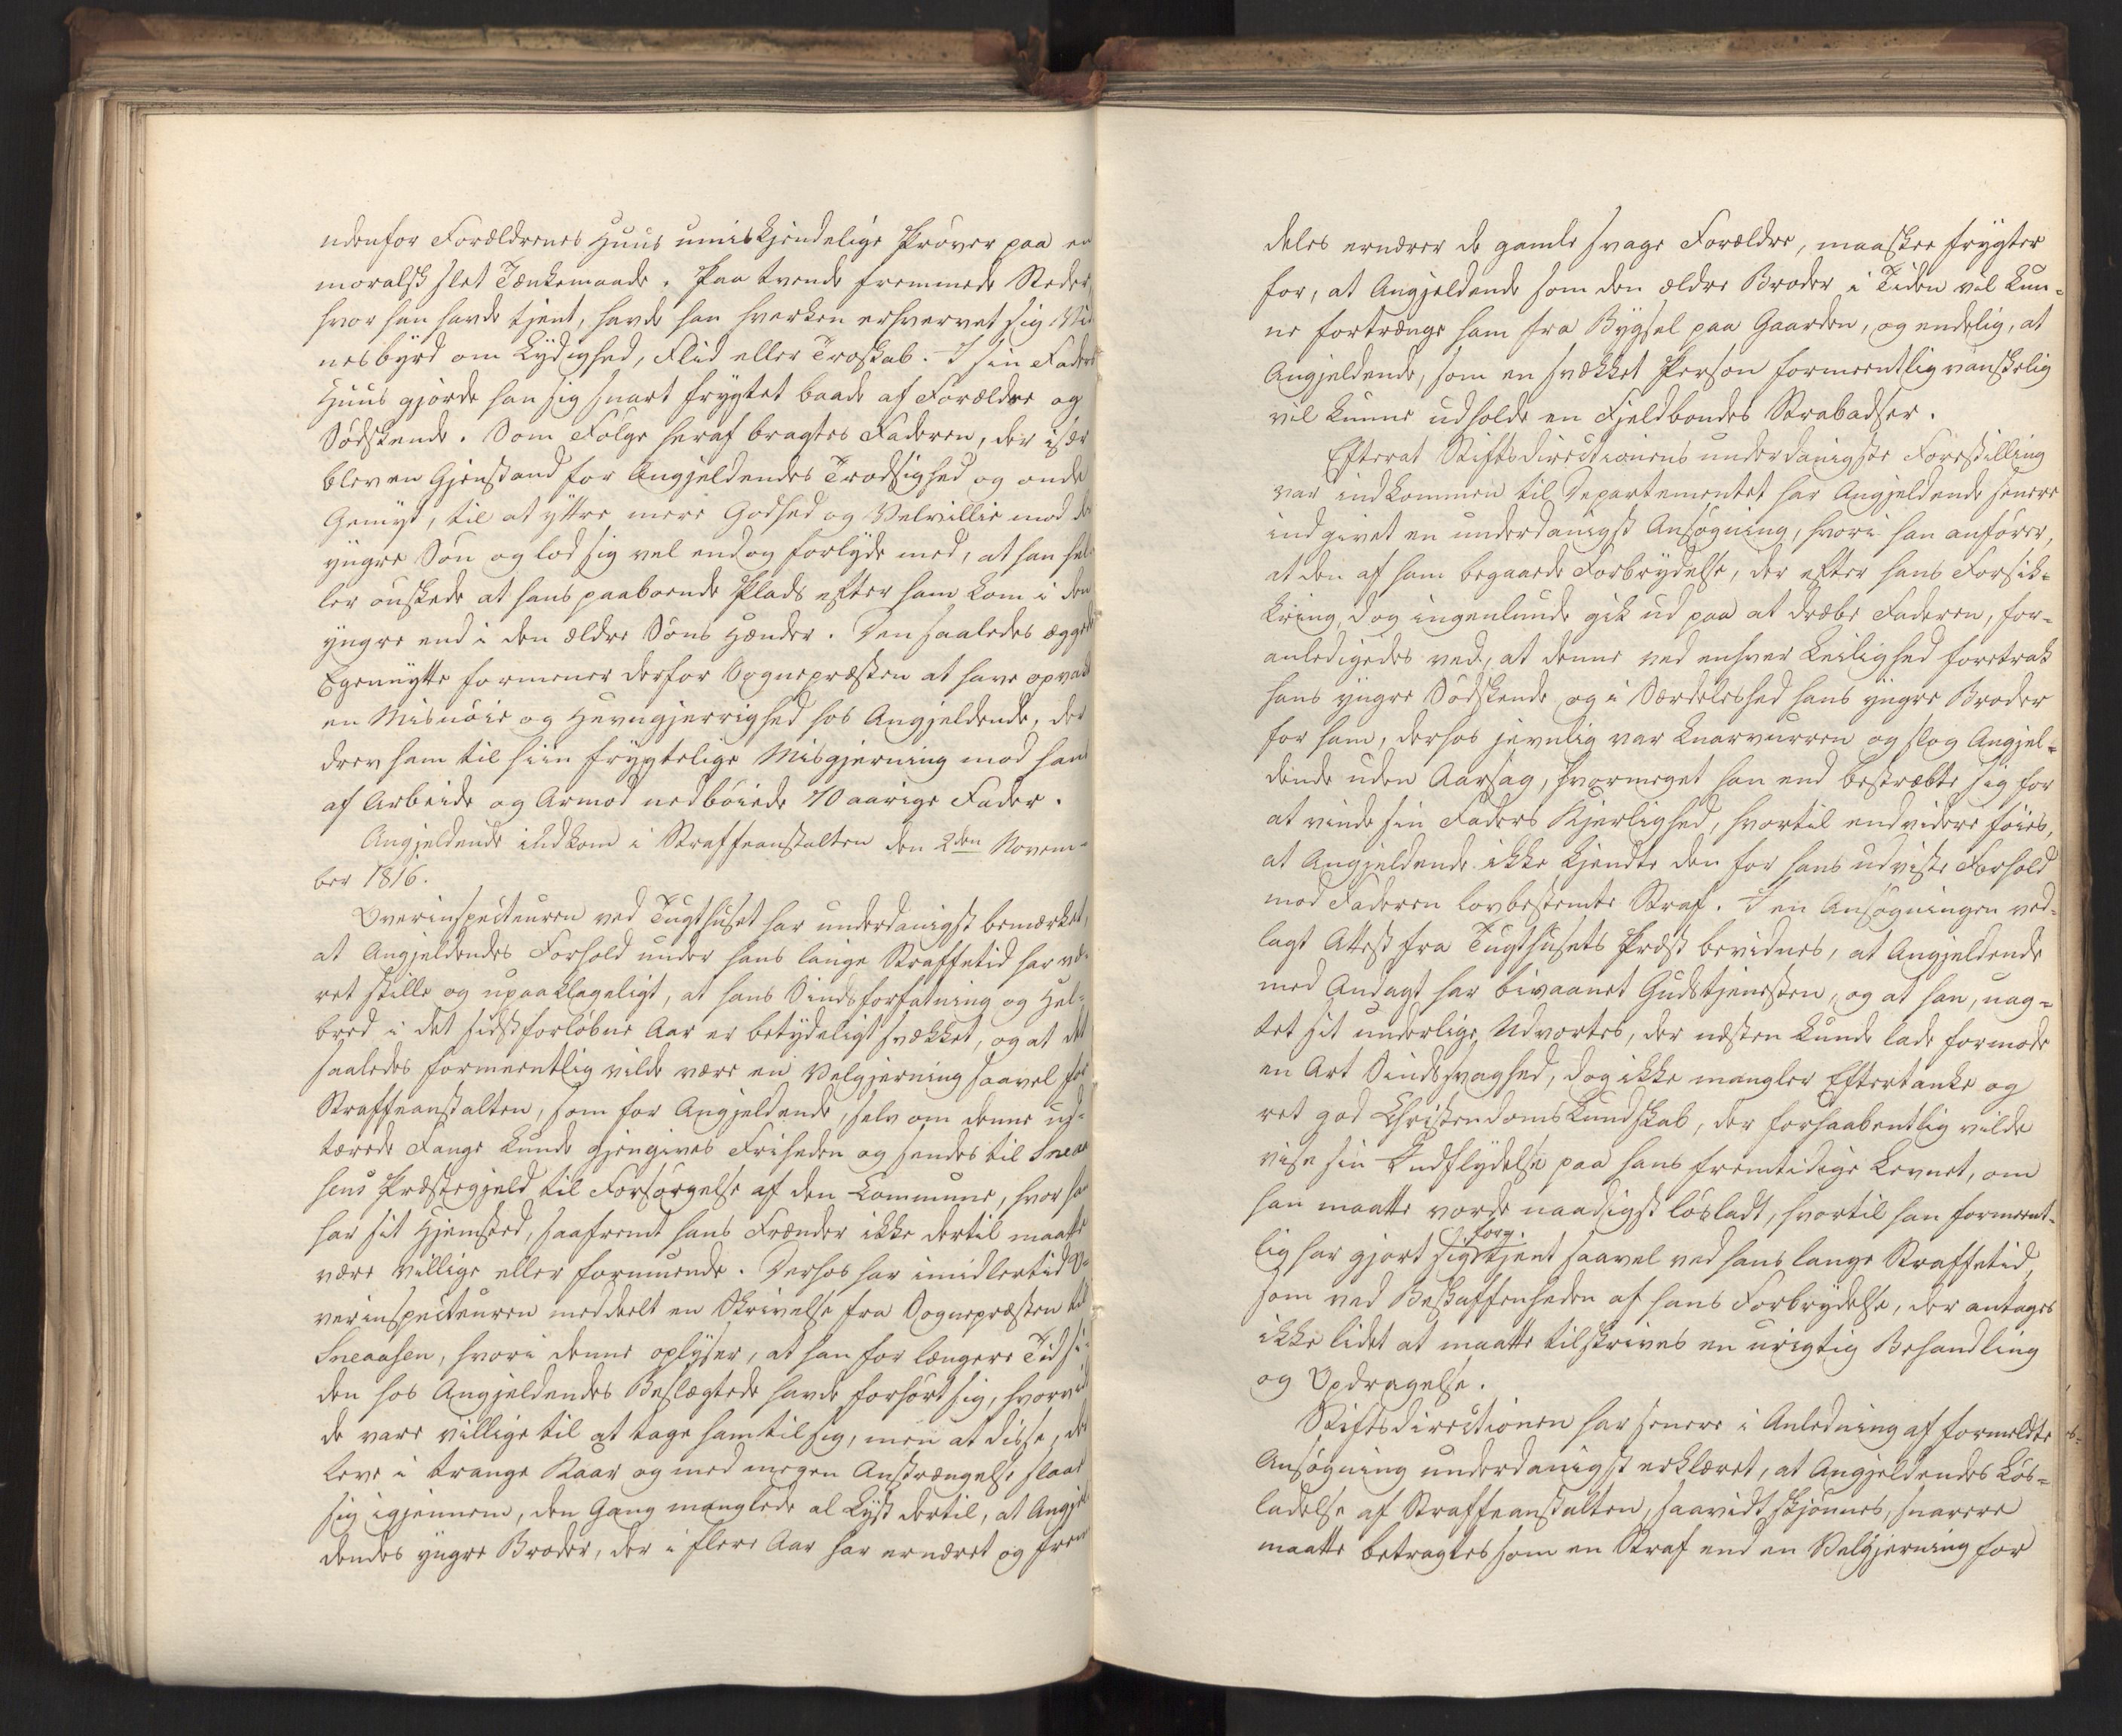 udenfor Forældrenes Huus umiskjendelige Prøver paa en
moralsk slet Tænkemaade. Paa tvende fremmede Steder,
hvor han havde tjent, havde han hverken erhvervet sig Vid
nesbyrd om Lydighed, Flid eller Troskab. I sin Faders
Huus gjorde han sig snart frygtet baade af Forældre og
Södskende. Som Følge heraf bragtes Faderen, der især
blev en Gjenstand for Angjeldendes Trodsighed og onde
Gemyt, til at yttre mere Godhed og Velvillie mod den
yngre Søn og lod sig vel endog forlyde med, at han hel
ler ønskede at hans paaboende Plads efter ham kom i den
yngre end i den ældre Søns Hænder. Den saaledes æggede
Egennytte formener derfor Sognepræsten at have opvakt
en Misnöie og Hevngjerrighed hos Angjeldende, der
drev ham til hiin frygtelige Misgjerning mod han
af Arbeide og Armod nedböiede 70 aarige Fader.
Angjeldende indkom i Straffeanstalten den 2den Novem-
ber 1816.
Overinspecteuren ved Tugthuset har underdanigst bemærket,
at Angjeldendes Forhold under hans lange Straffetid har væ-
ret stille og upaaklageligt, at hans Sindsforfatning og Hel-
bred i det sidst forløbne Aar er betydeligt svækket, og at det
saaledes formeentlig vilde være en Velgjerning saavel for
Straffeanstalten, som for Angjeldende, selv om denne ud-
tærede Fange kunde gjengives Friheden og sendes til Sneaa
sens Præstegjeld til Forsörgelse af den Commune, hvor han
har sit Hjemsted, saafremt hans Frænder ikke dertil maatte
være villige eller formuende. Derhos har imidlertid O-
verinspecteuren meddeelt en Skrivelse fra Sognepræsten til
Sneaasen, hvori denne oplyser, at han for længere Tid si-
den hos Angjeldendes Beslægtede havde forhört sig, hvorvidt
de vare villige til at tage ham til sig, men at disse, der
leve i trange Kaar og med megen Anstrængelse slaae
sig igjennem, den Gang manglede al Lyst dertil, at Angjel
dendes yngre Broder, der i flere Aar har ernæret og frem
deles ernærer de gamle svage Forældre, maaskee frygter
for, at Angjeldende som den ældre Broder i Tiden vil kun-
ne fortrænge ham fra Bygsel paa Gaarden, og endelig, at
Angjeldende, som en svækket Person formeentlig vanskelig
vil kunne udholde en Fjeldbondes Strabadser.
Efterat Stiftsdirectionens underdanigste Forestilling
var indkommen til Departementet har Angjeldende senere
indgivet en underdanigst Ansøgning, hvori han anfører,
at den af ham begaaede Forbrydelse, der efter hans Forsik-
kring, dog ingenlunde gik ud paa at dræbe Faderen, for-
anledigedes ved, at denne ved enhver Leilighed foretrak
hans yngre Södskende og i Særdeleshed hans yngre Broder
for ham, derhos jevnlig var knarvurren og slog Angjel-
dende uden Aarsag, hvormeget han end bestræbte sig for
at vinde sin Faders Kjerlighed, hvortil endvidere föies,
at Angjeldende ikke kjendte den for hans udviste Forhold
mod Faderen lovbestemte Straf. I en Ansøgningen ved-
lagt Attest fra Tugthusets Præst bevidnes, at Angjeldende
med Andagt har bivaanet Gudstjenesten, og at han, uag-
tet sit underlige Udvortes, der næsten kunde lade formode
en Art Sindssvaghed, dog ikke mangler Eftertanke og
ret god Christendoms Kundskab, der forhaabentlig vilde
vise sin Indflydelse paa hans fremtidige Levnet, om
han maatte vorde naadigst lösladt, hvortil han formeent-
lig har gjort sig værdig tjent saavel ved hans lange Straffetid,
som ved Beskaffenheden af hans Forbrydelse, der antages
ikke lidet at maatte tilskrives en urigtig Behandling
og Opdragelse.
Stiftsdirectionen har senere i Anledning af formeldte
Ansøgning underdanigst erklæret, at Angjeldendes Lös-
ladelse af Straffeanstalten, saavidt skjönnes, snarere
maatte betragtes som en Straf end en Velgjerning for